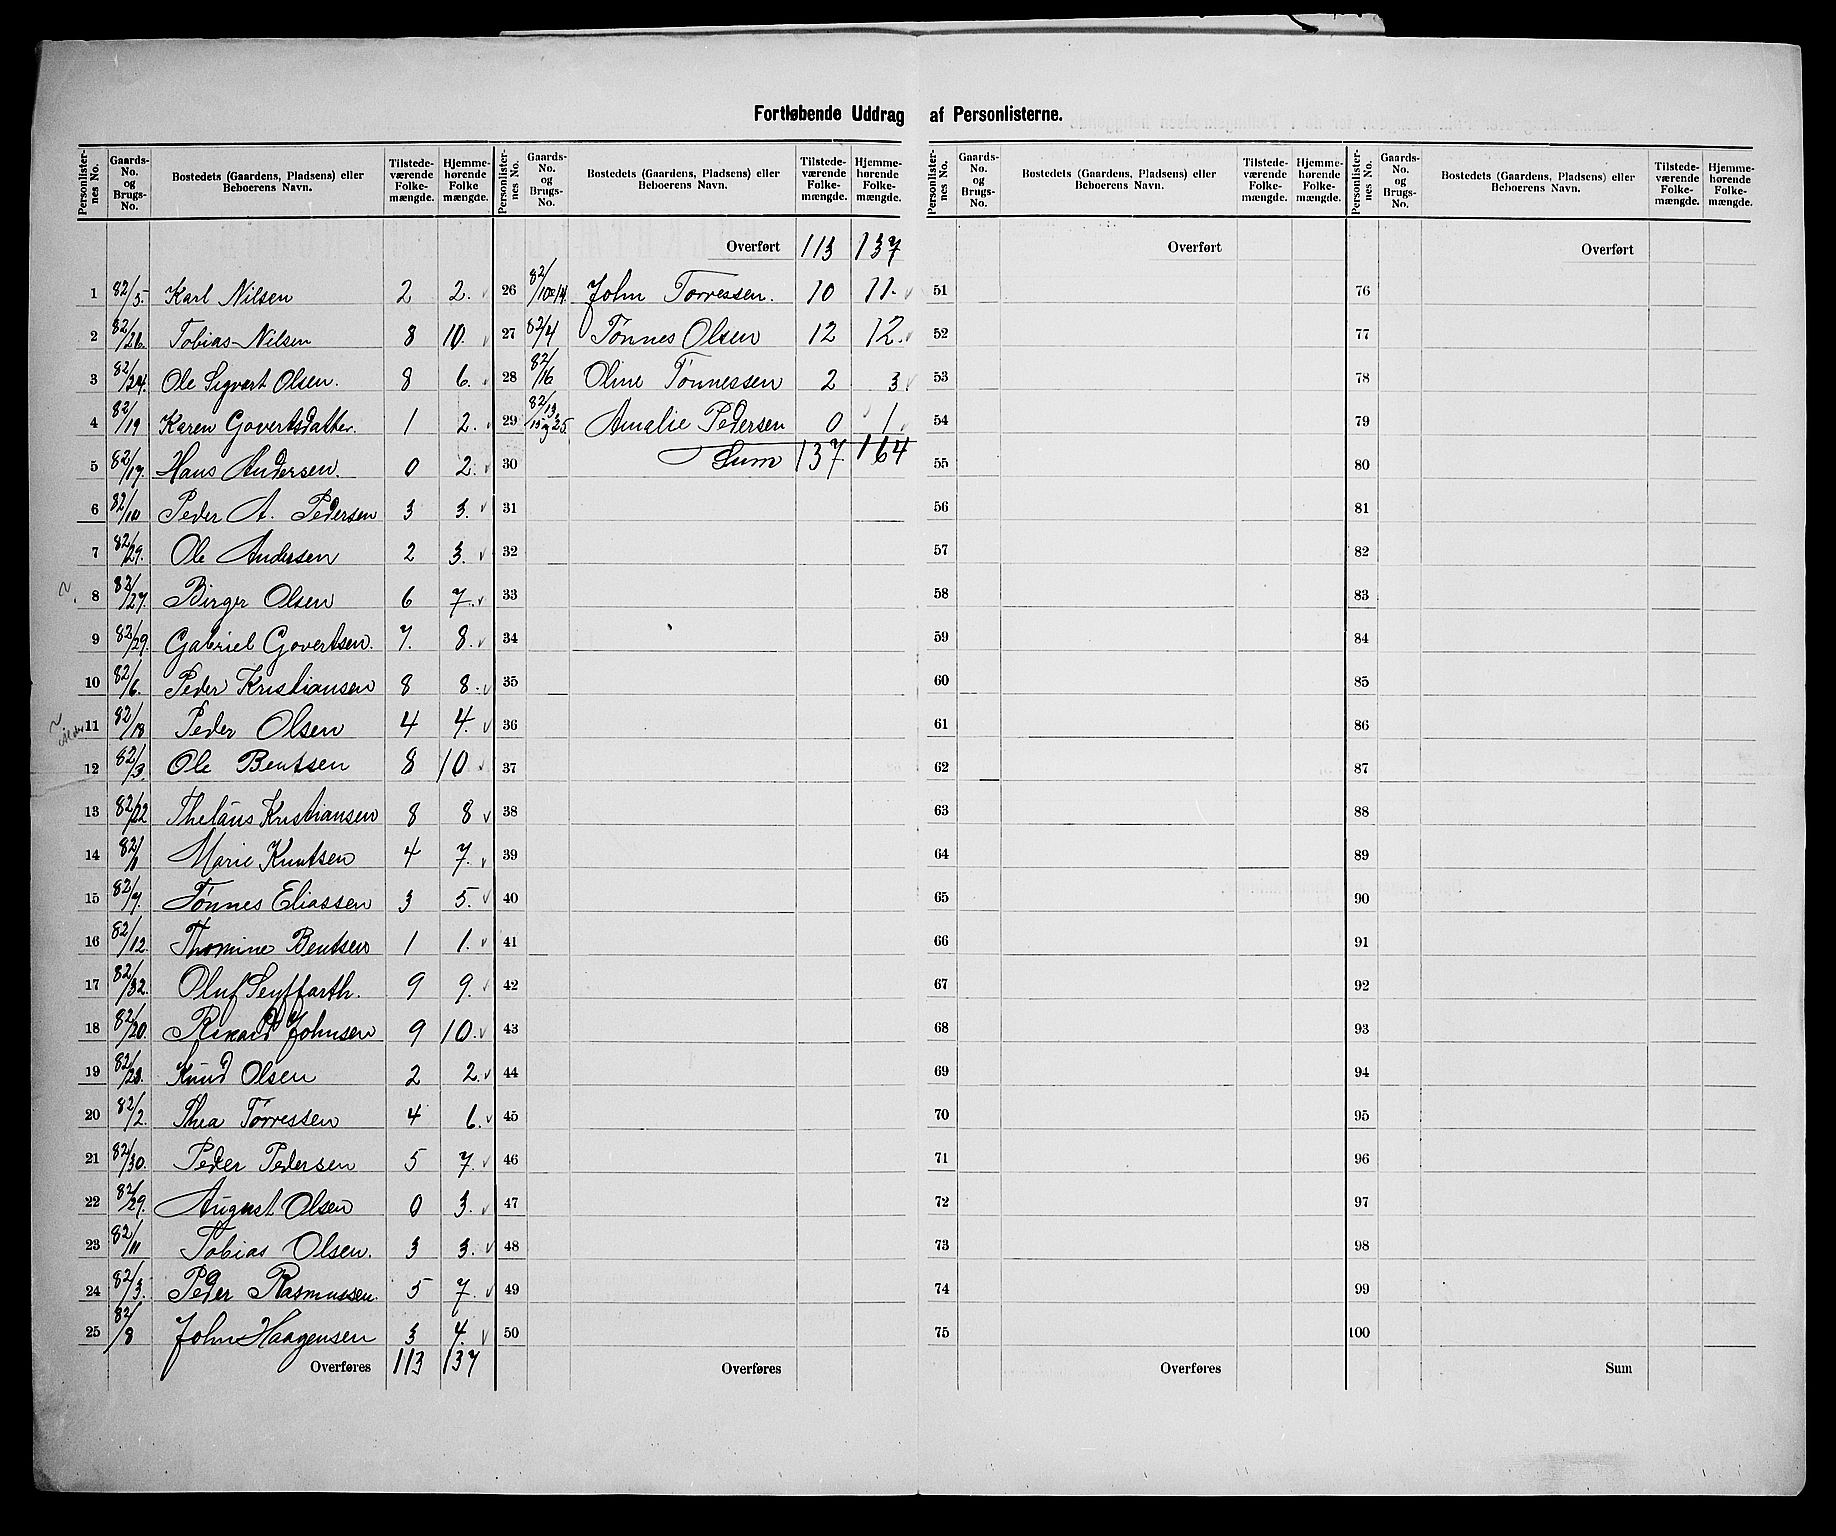 Fortløbende Uddrag af Personlisterne.
Personlister-nes No. | Gaards-No. og Brugs-No. | Bostedets (Gaardens, Pladsens) eller Beboerens Navn. | Tilstede-værende Folke-mængde. | Hjemme-hørende Folke mængde.
1 82/5. Karl Nilsen 2 2.
2 82/26. Tobias Nilsen 8 10.
3 82/24. Ole Sigvart Olsen. 8 6.
4 82/19 Karen Govertsdatter. 1 2.
5 82/17. Hans Andersen. 0 2.
6 82/10 Peder A. Pedersen 3 3.
7 82/29. Ole Andersen 2 3.
8 82/27. Birger Olsen 6 7.
9 82/29. Gabriel Govertsen. 7. 8.
10 82/6. Peder Kristiansen 8 8.
11 82/18 Peder Olsen 4 4.
12 82/3. Ole Bentsen 8 10
13 82/22 Thelâus Kristiansen 8 8
14 82/1 Marie Knutsen 4 7.
15 82/9. Tønnes Eliassen 3 5.
16 82/12. Thomine Bentsen 1 1.
17 82/32. Oluf Seyffarth. 9 9.
18 82/20. Rikard Johnsen 9 10.
19 82/23. Knud Olsen 2 2.
20 82/2. Thea Tørressen 4 6.
21 82/30. Peder Pedersen 5 7.
22 82/29. August Olsen 0 3.
23 82/11 Tobias Olsen. 3 3.
24 82/3. Peder Rasmussen. 5 7.
25 82/8 John Haagensen 3 4.
Overføres 113 137
Personlister-nes No. | Gaards-No. og Brugs-No. | Bostedets (Gaardens, Pladsens) eller Beboerens Navn. | Tilstede-værende Folke-mængde. | Hjemme-hørende Folke-mængde.
Overført 113 137
26 82/10 14. John Tørressen. 10 11.
27 82/4 Tønnes Olsen 12 12.
28 82/16 Oline Tønnessen 2 3
29 82/13 15 og 25. Amalie Pedersen 0 1
30 Sum 137. 164
31
32
33
34
35
36
37
38
39
40
41
42
43
44
45
46
47
48
49
50
Overføres
Personlister-nes No. | Gaards-No. og Brugs-No. | Bostedets (Gaardens, Pladsens) eller Beboerens Navn. | Tilstede-værende Folke-mængde. | Hjemme-hørende Folke-mængde.
Overført
51
52
53
54
55
56
57
58
59
60
61
62
63
64
65
66
67
68
69
70
71
72
73
74
75
Overføres
Personlister-nes No. | Gaards-No. og Brugs-No. | Bostedets (Gaardens, Pladsens) eller Beboerens Navn. | Tilstede-værende Folke-mængde. | Hjemme-hørende Folke-mængde.
Overført
76
77
78
79
80
81
82
83
84
85
86
87
88
89
90
91
92
93
94
95
96
97
98
99
100
Sum